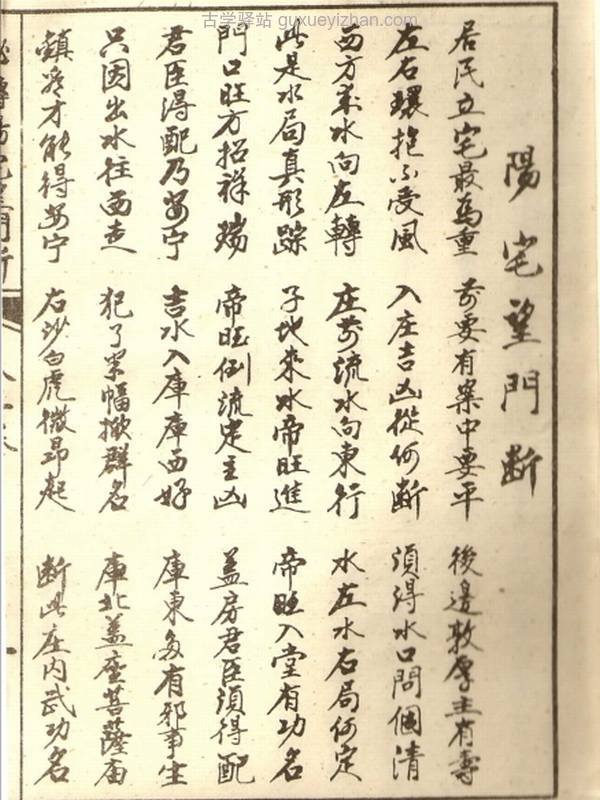 古学驿站 guxueyizhan.com
陽宅望門断
居民立宅最為重 前要有案中要平 後邊敦厚主有壽
左右環抱不受風 入庄吉凶從何断 須得水口問個清
西方来水向左轉 庄前流水向東行 水左水右局何定
此是水局真形踪 子地來水帝旺進 帝旺入堂有功名
門口旺方招祥瑞 帝旺倒流定主凶 盖房君臣須得配
君臣得配乃安宁 吉水入庫庫西好 庫東多有邪事生
只因出水往西走 犯了幅掀群名 庫北盖座菩薩庙
鎮才能得安宁 右沙白虎微昂起 断此庄内武功名